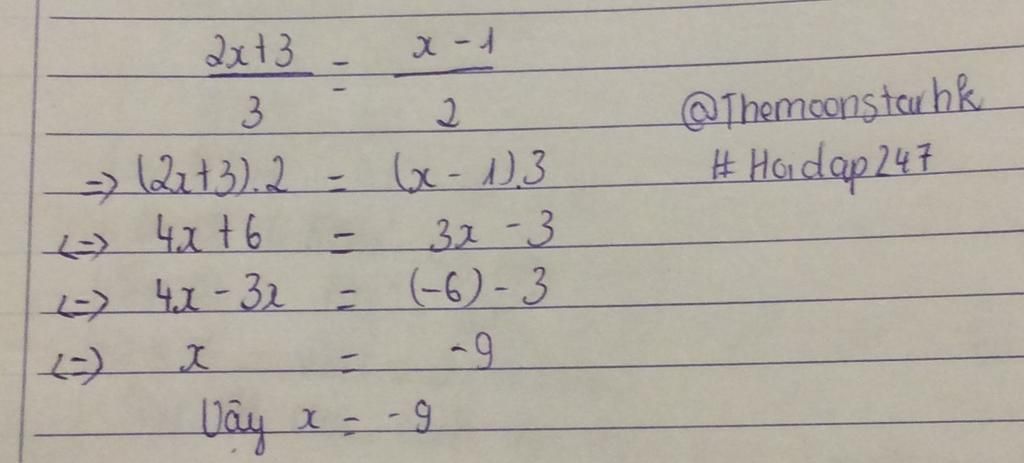 2x+3 = x-1
3 2
@Themoonstarhk
=> (2x+3).2 = (x-1).3
#Hoidap247
<=> 4x+6 = 3x-3
<=> 4x-3x = (-6)-3
<=> x = -9
Vậy x = -9